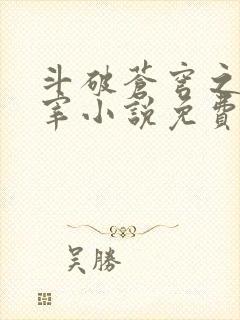 斗破蒼穹之
宰小說免費
吴勝